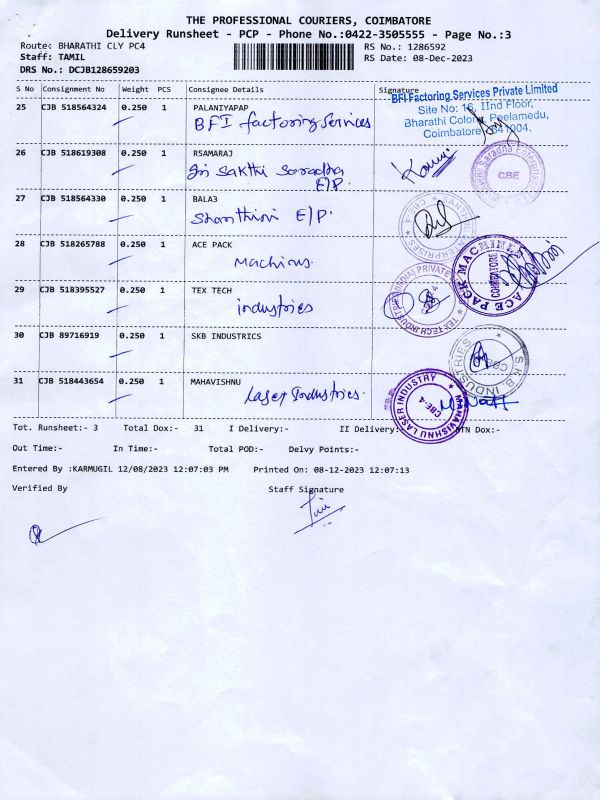 THE PROFESSIONAL COURIERS, COIMBATORE
Delivery Runsheet - PCP - Phone No.:0422-3505555 - Page No.:3
Route: BHARATHI CLY PC4 RS No.: 1286592
Staff: TAMIL RS Date: 08-Dec-2023
DRS No.: DCJB128659203
S No Consignment No Weight PCS Consignee Details Signature
25 CJB 518564324 0.250 1 PALANIYAPAP
BFI factoring Services
BFI Factoring Services Private Limited
Site No: 16, IInd Floor,
Bharathi Colony, Peelamedu,
Coimbatore 641004.
26 CJB 518619308 0.250 1 R5AMARAJ
Sri Sakthi Saradha
E/P.
CBE
27 CJB 518564330 0.250 1 BALA3
E/P.
28 CJB 518265788 0.250 1 ACE PACK
Machines
ACE PACK MACHINES
COIMBATORE
29 CJB 518395527 0.250 1 TEX TECH
industries
TEX TECH INDUSTRIES (INDIA) PRIVATE
30 CJB 89716919 0.250 1 SKB INDUSTRICS
S.K.B INDUSTRIES
31 CJB 518443654 0.250 1 MAHAVISHNU
Laser Industries.
MAHAVISHNU LASER INDUSTRY
CBE-4
Tot. Runsheet:- 3 Total Dox:- 31 I Delivery:- II Delivery:- RTN Dox:-
Out Time:- In Time:- Total POD:- Delvy Points:-
Entered By :KARMUGIL 12/08/2023 12:07:03 PM Printed On: 08-12-2023 12:07:13
Verified By Staff Signature